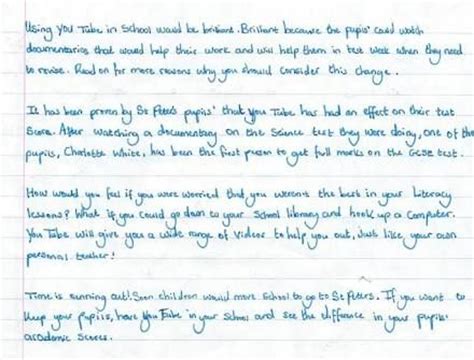 Using YOU Tube in School would be brilliant. Brilliant because the pupils' could watch
documentaries that would help their work and will help them in test week when they need
to revise. Read on for more reasons why you should consider this change.
It has been proven by St Peters pupils' that You Tube has had an effect on their test
Score. After watching a documentary on the Science test they were doing, one of the
pupils, Charlotte White, has been the first person to get full marks on the GCSE test.
How would you feel if you were worried that you weren't the best in your Literacy
lessons? What if you could go down to your School library and hook up a computer.
You Tube will give you a wide range of videos to help you out, Just like your own
personal teacher!
Time is running out! Soon children would move School to go to St Peters. If you want to
keep your pupils, have You Tube in your School and see the difference in your pupils
academic scores.